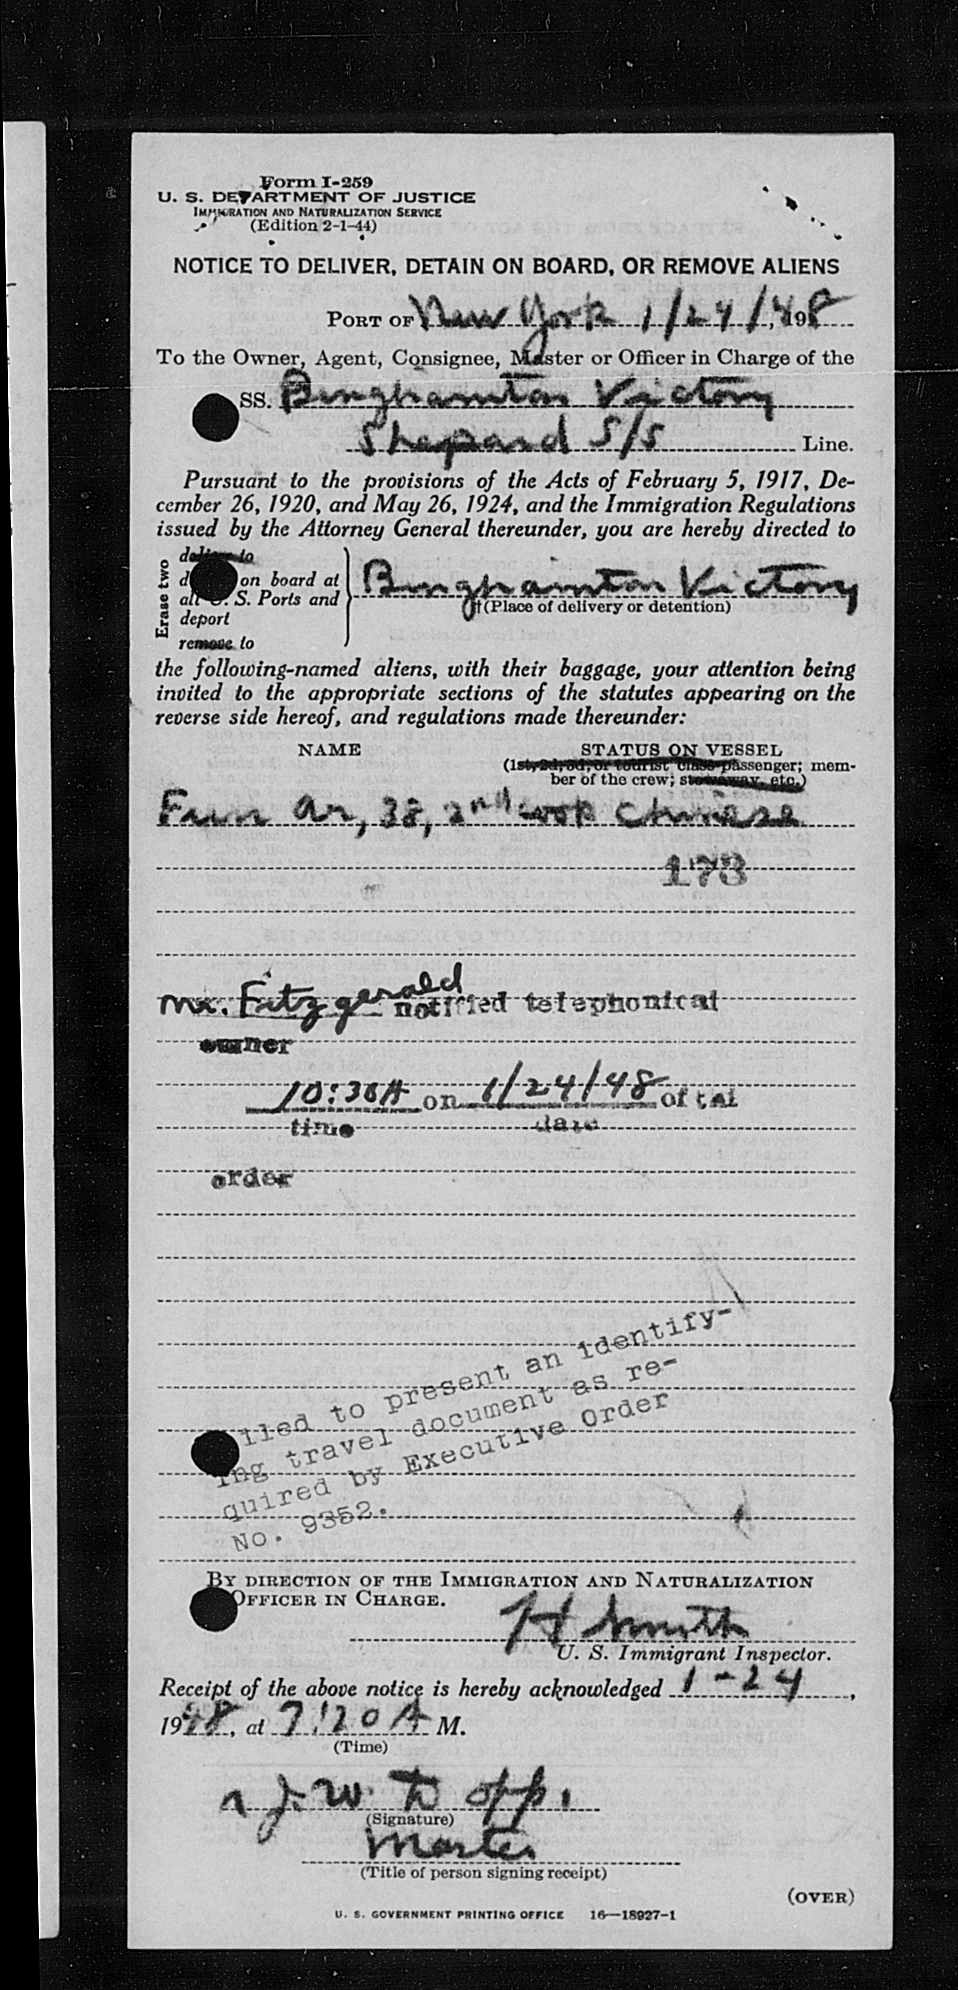 Form I-259
U. S. DEPARTMENT OF JUSTICE
IMMIGRATION AND NATURALIZATION SERVICE
(Edition 2-1-44)
NOTICE TO DELIVER, DETAIN ON BOARD, OR REMOVE ALIENS
PORT OF New York 1/24/48, 198
To the Owner, Agent, Consignee, Master or Officer in Charge of the
SS. Binghamton Victory
Shepard S/S Line.
Pursuant to the provisions of the Acts of February 5, 1917, De-
cember 26, 1920, and May 26, 1924, and the Immigration Regulations
issued by the Attorney General thereunder, you are hereby directed to
Erase two
deliver to
on board at
all U. S. Ports and
deport
remove to
Binghamton Victory
†(Place of delivery or detention)
the following-named aliens, with their baggage, your attention being
invited to the appropriate sections of the statutes appearing on the
reverse side hereof, and regulations made thereunder:
NAME STATUS ON VESSEL
(1st, 2d, 3d, or tourist class passenger; mem-
ber of the crew; stowaway, etc.)
Fun Ar, 38, 2nd cook Chinese
173
Mr. Fitzgerald notified telephonical
owner
10:30A on 1/24/48 of
time date
order
to present an identify-
ing travel document as re-
quired by Executive Order
No. 9352.
BY DIRECTION OF THE IMMIGRATION AND NATURALIZATION
OFFICER IN CHARGE.
H Smith
U. S. Immigrant Inspector.
Receipt of the above notice is hereby acknowledged 1-24,
1948, at 7:20 A M.
(Time)
J. W.
(Signature)
Master
(Title of person signing receipt)
(OVER)
U. S. GOVERNMENT PRINTING OFFICE 16—18927-1